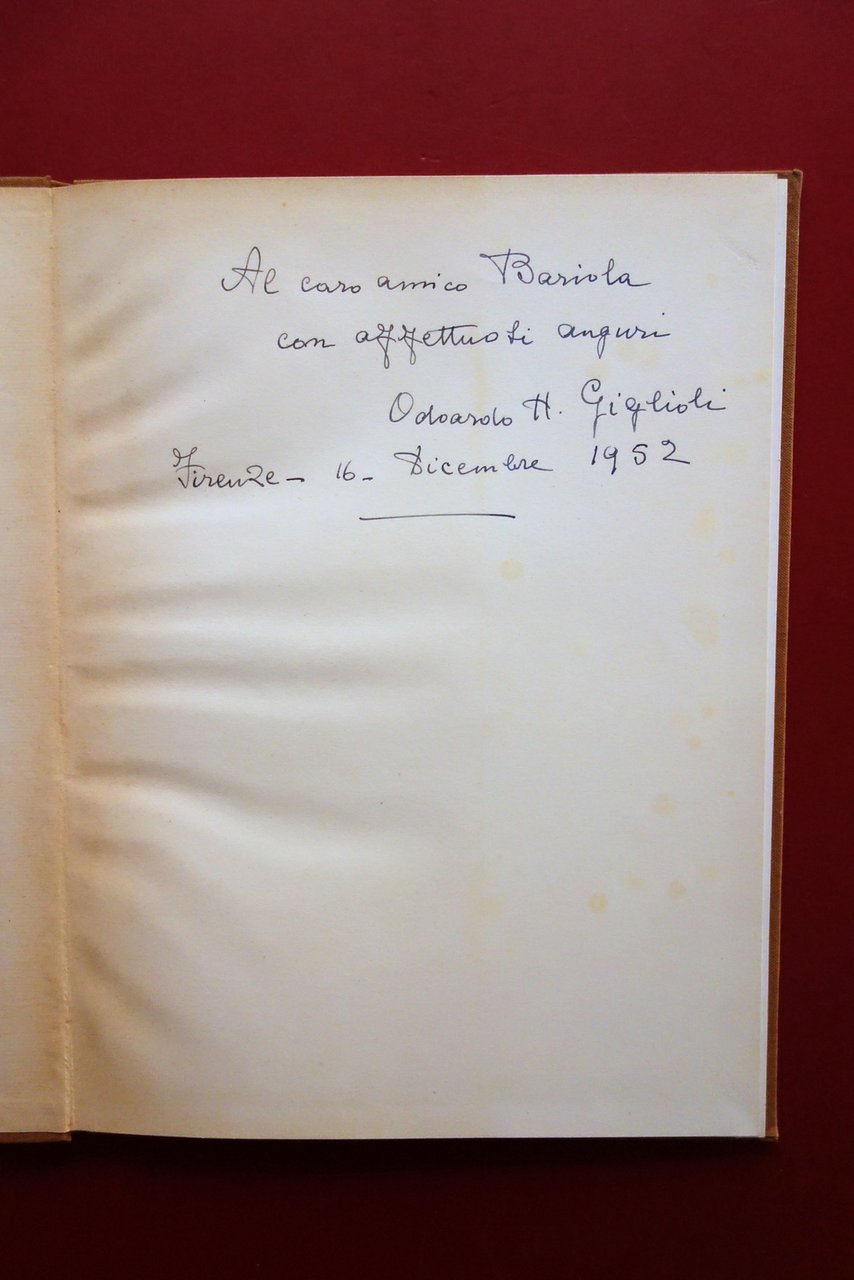 Al caro amico Bariola
con affettuosi auguri
Odoardo H. Giglioli
Firenze - 16 - Dicembre 1952